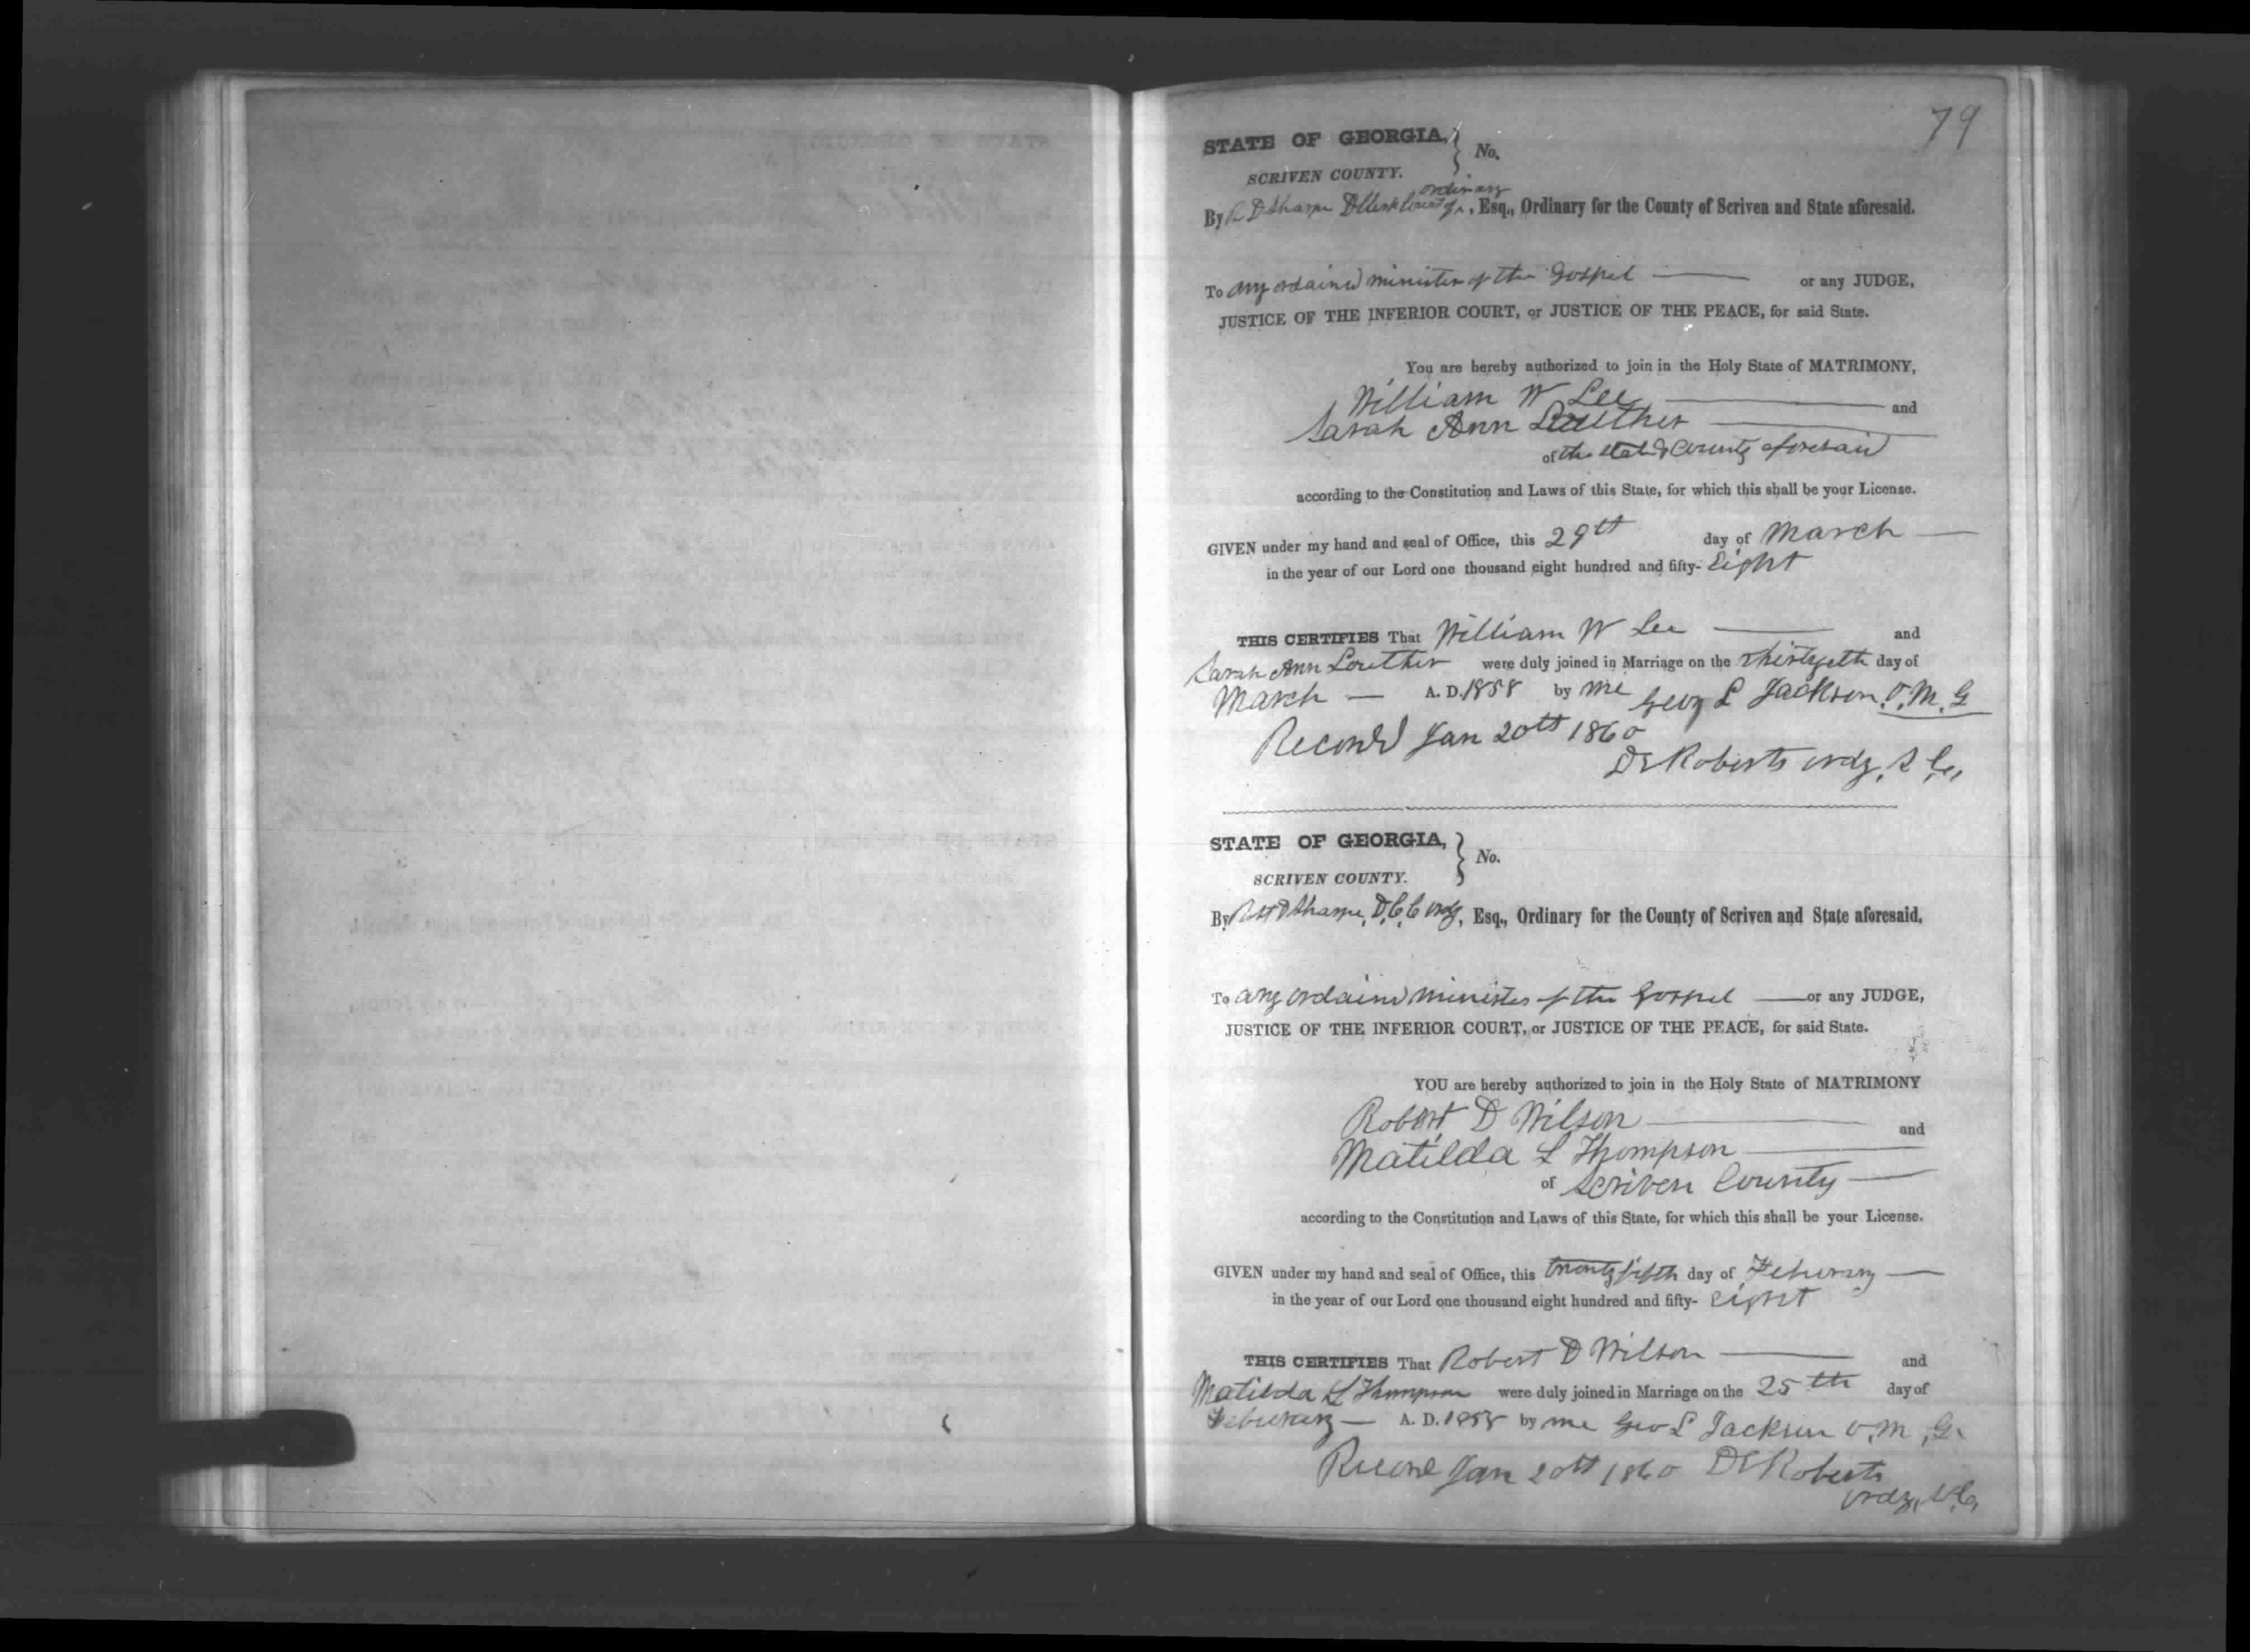 79
STATE OF GEORGIA, } No.
SCRIVEN COUNTY.
ordinary
By R D Sharpe D Clerk Court of, Esq., Ordinary for the County of Scriven and State aforesaid.
To any ordained minister of the Gospel or any JUDGE,
JUSTICE OF THE INFERIOR COURT, or JUSTICE OF THE PEACE, for said State.
You are hereby authorized to join in the Holy State of MATRIMONY,
William W Lee and
Sarah Ann Louther
of the State & County aforesaid
according to the Constitution and Laws of this State, for which this shall be your License.
GIVEN under my hand and seal of Office, this 29th day of March
in the year of our Lord one thousand eight hundred and fifty- Eight
THIS CERTIFIES That William W Lee and
Sarah Ann Louther were duly joined in Marriage on the Thirtyeth day of
March A. D. 1858 by me Geo L Jackson O. M. G
Record Jan 20th 1860
DE Roberts ordy, S C,
STATE OF GEORGIA, } No.
SCRIVEN COUNTY.
By Robt D Sharpe, D, C, C ordy, Esq., Ordinary for the County of Scriven and State aforesaid,
To any ordaind minister of the Gospel or any JUDGE,
JUSTICE OF THE INFERIOR COURT, or JUSTICE OF THE PEACE, for said State.
YOU are hereby authorized to join in the Holy State of MATRIMONY
Robert D Wilson and
Matilda L Thompson
of Scriven County
according to the Constitution and Laws of this State, for which this shall be your License.
GIVEN under my hand and seal of Office, this twenty fifth day of Feburary
in the year of our Lord one thousand eight hundred and fifty- eight
THIS CERTIFIES That Robert D Wilson and
Matilda L Thompson were duly joined in Marriage on the 25th day of
Feburary A. D. 1858 by me Geo L Jackson O. M. G.
Record Jan 20th 1860 DE Roberts
ordy, S C,